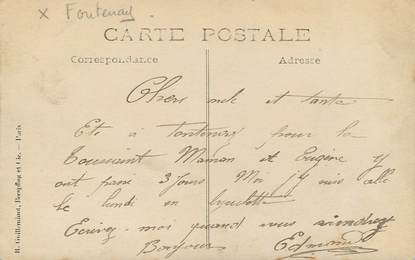 x Fontenay
CARTE POSTALE
Correspondance
Adresse
Chers oncle et tante
Eté à Fontenay pour la
Toussaint Maman et Eugène y
ont passé 3 jours Moi j'y suis allé
le lundi en bicyclette
Ecrivez-moi quand vous viendrez
Bonjour Edmond
H. Guilleminot, Boespflug et Cie. — Paris